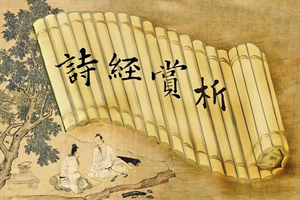 詩經賞析